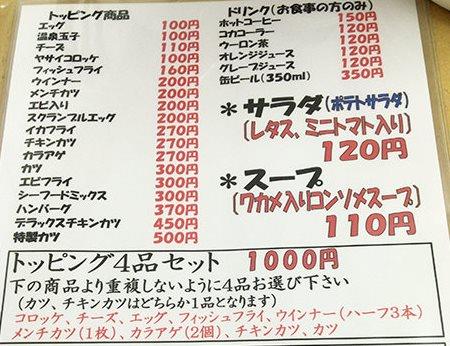 トッピング商品
エッグ 100円
温泉玉子 100円
チーズ 110円
ヤサイコロッケ 100円
フィッシュフライ 160円
ウインナー 200円
メンチカツ 200円
エビ入り 200円
スクランブルエッグ 200円
イカフライ 270円
チキンカツ 270円
カラアゲ 270円
カツ 300円
エビフライ 300円
シーフードミックス 300円
ハンバーグ 370円
デラックスチキンカツ 450円
特製カツ 500円
ドリンク(お食事の方のみ)
ホットコーヒー 150円
コカコーラー 120円
ウーロン茶 120円
オレンジジュース 120円
グレープジュース 120円
缶ビール(350ml) 350円
*サラダ(ポテトサラダ)
(レタス、ミニトマト入り)
120円
*スープ
(ワカメ入りコンソメスープ)
110円
トッピング4品セット 1000円
下の商品より重複しないように4品お選び下さい
(カツ、チキンカツはどちらか1品となります)
コロッケ、チーズ、エッグ、フィッシュフライ、ウインナー(ハーフ3本)
メンチカツ(1枚)、カラアゲ(2個)、チキンカツ、カツ